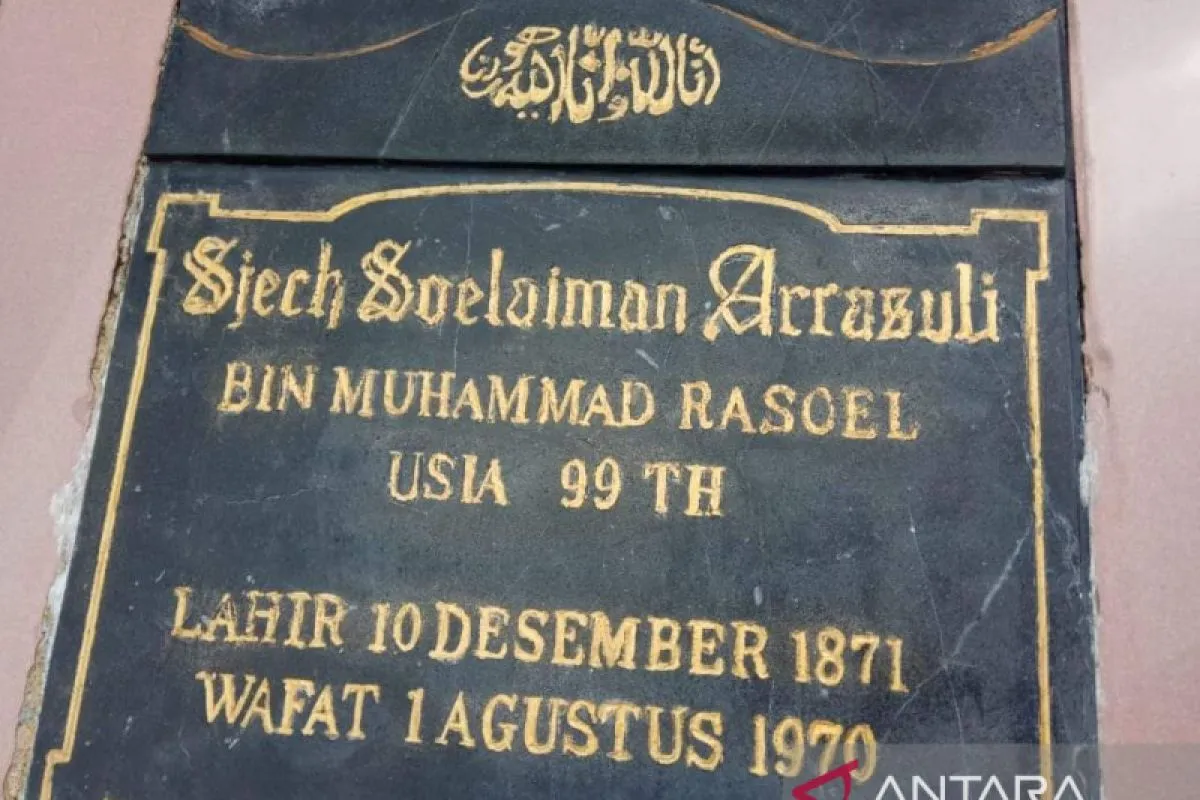 انا لله وانا اليه راجعون
Sjech Soelaiman Arrasuli
BIN MUHAMMAD RASOEL
USIA 99 TH
LAHIR 10 DESEMBER 1871
WAFAT 1 AGUSTUS 1970
ANTARA